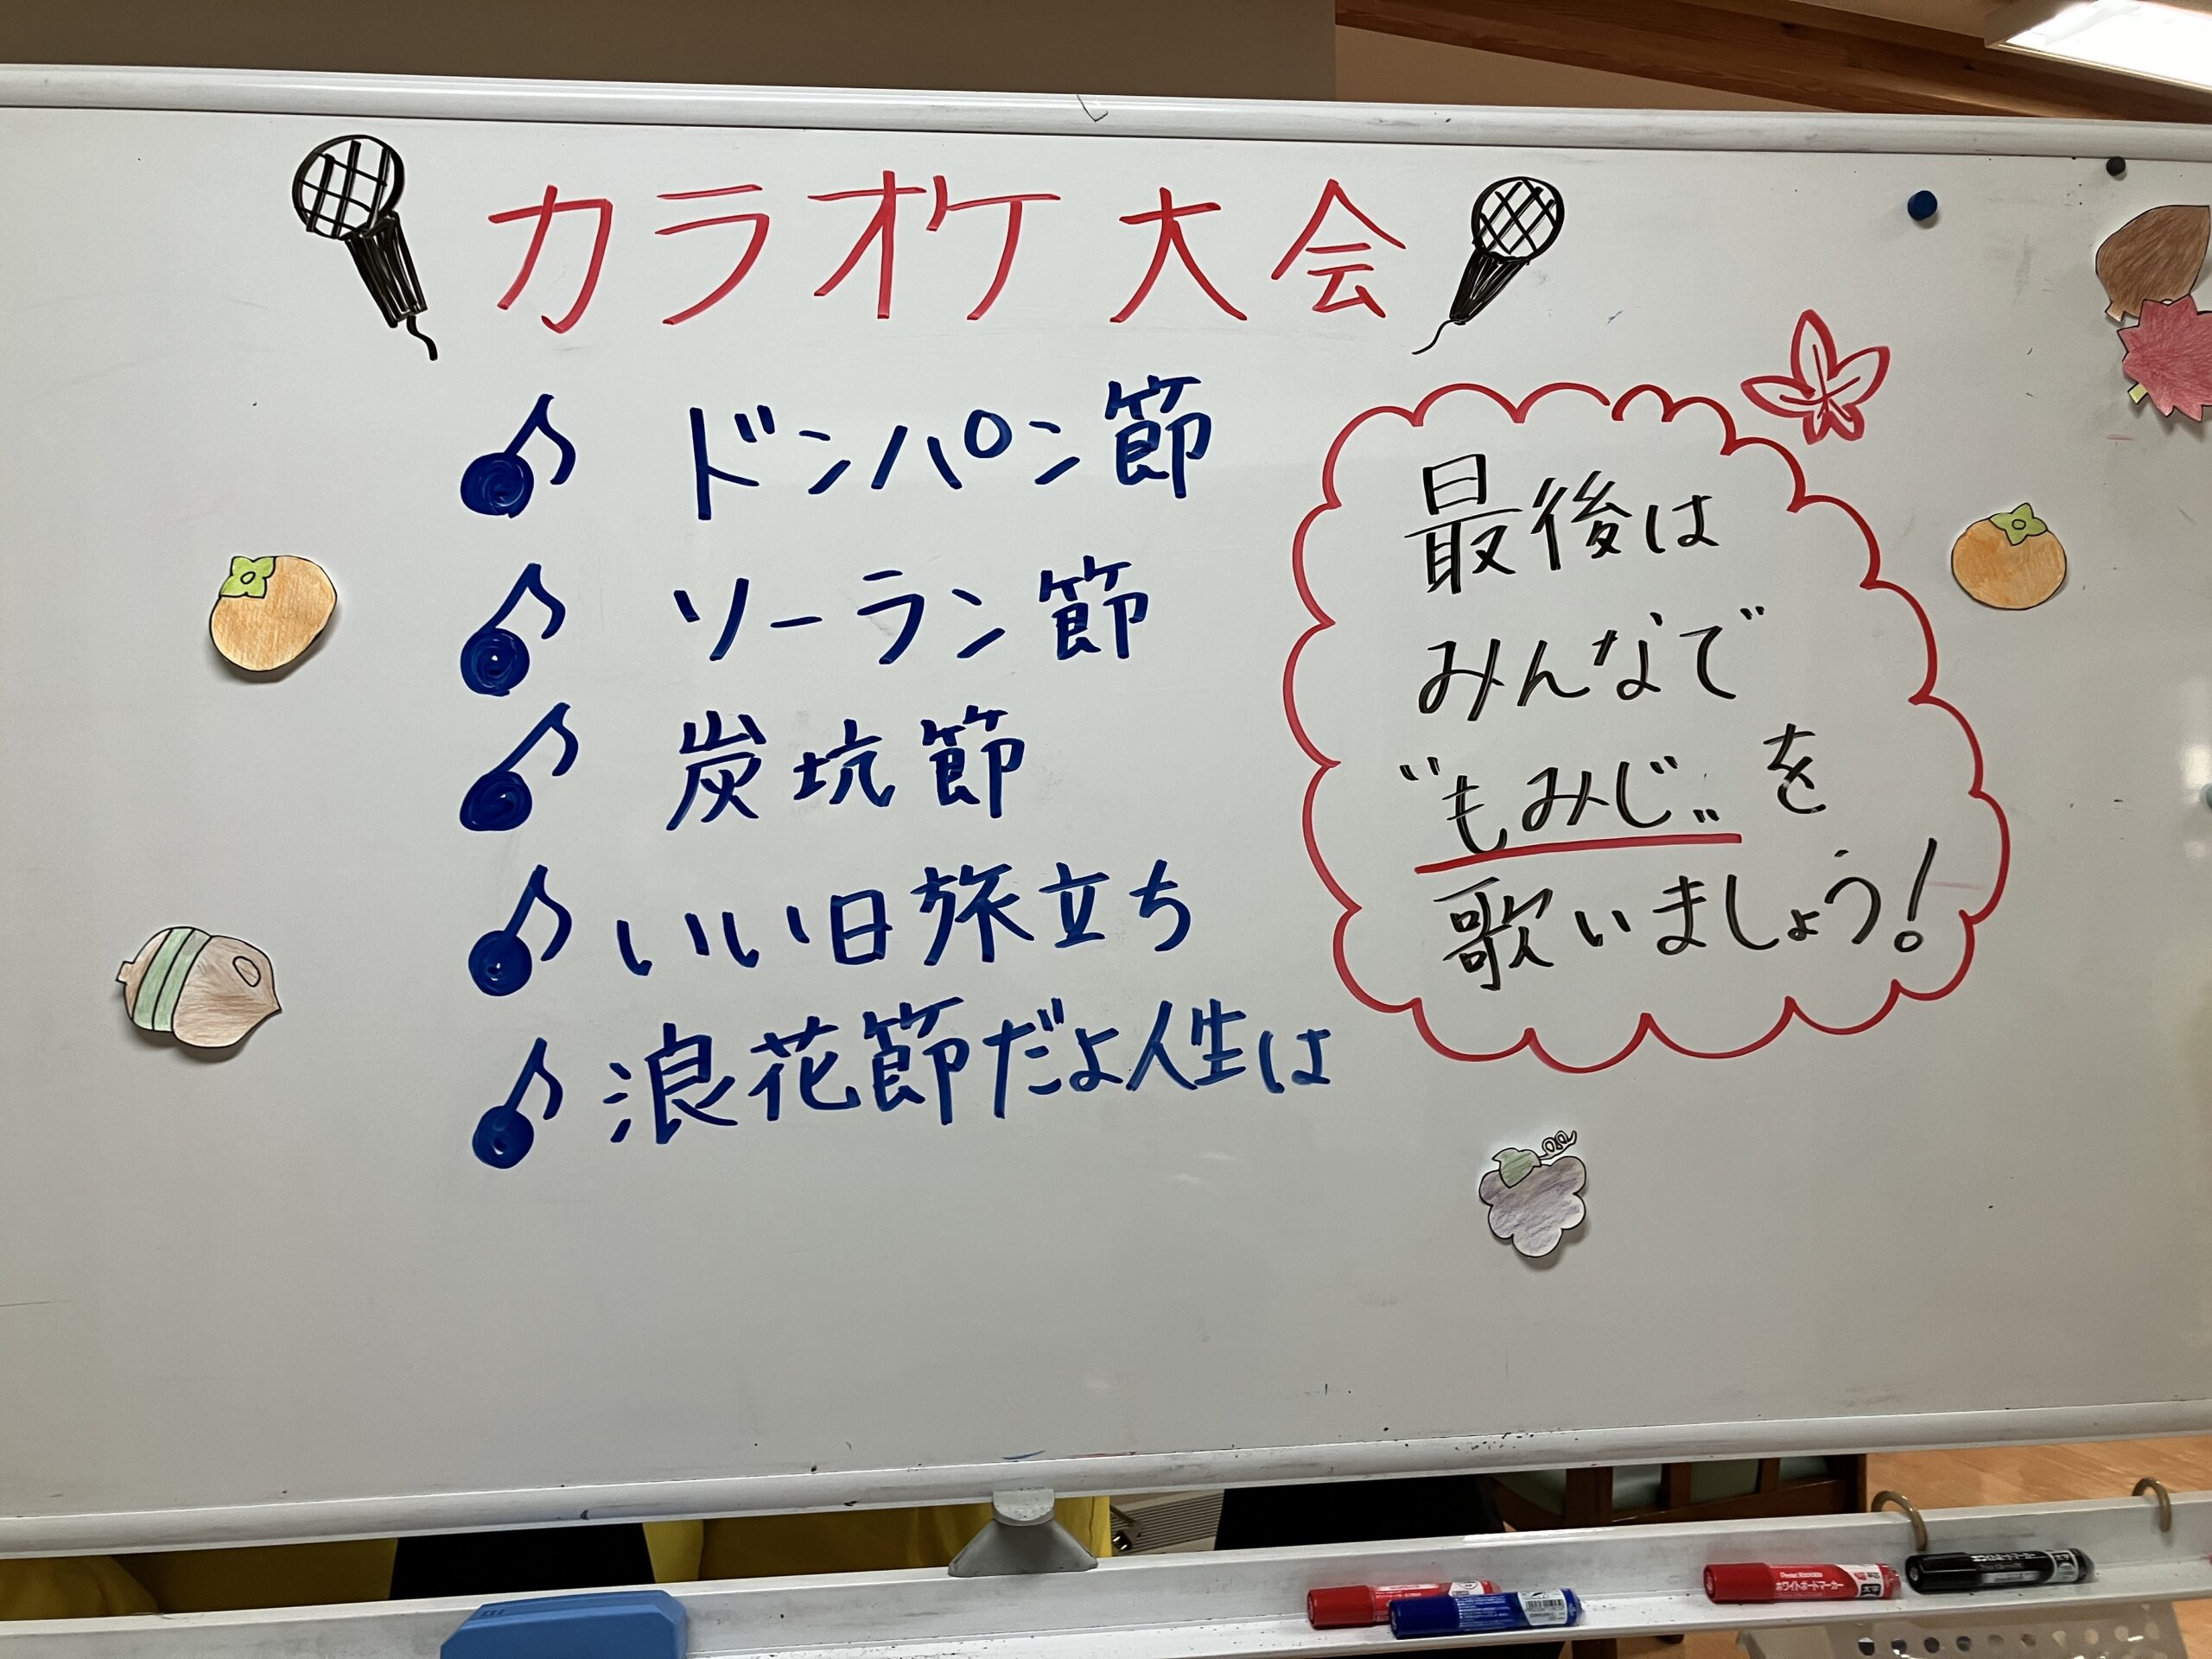 カラオケ大会
ドンパン節
ソーラン節
炭坑節
いい日旅立ち
浪花節だよ人生は
最後は
みんなで
"もみじ"を
歌いましょう!
ホワイトボードマーカー